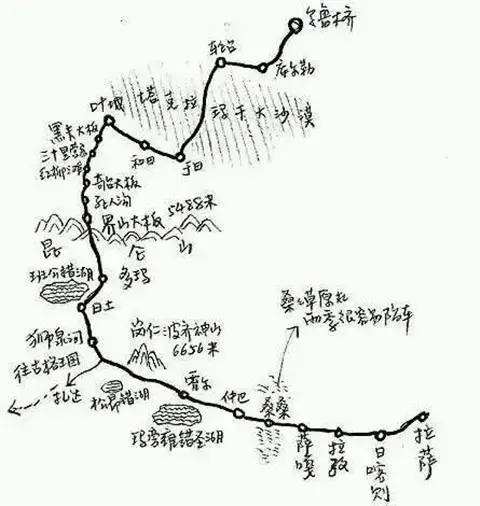 乌鲁木齐
轮台
库尔勒
塔克拉玛干大沙漠
叶城
和田
于田
黑卡大板
三十里营房
红柳滩
奇台大板
死人沟
界山大板 5488米
昆仑山
班公错湖
多玛
日土
狮泉河
往古格王国
扎达
冈仁波齐神山
6656米
霍尔
玛旁雍错圣湖
仲巴
桑桑
桑桑草原和
雨季很容易陷车
萨嘎
拉孜
日喀则
拉萨